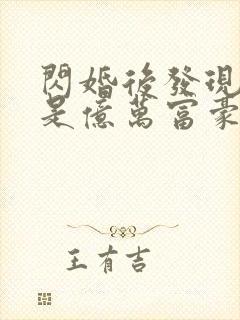 閃婚後發現
是億萬富豪
王有吉